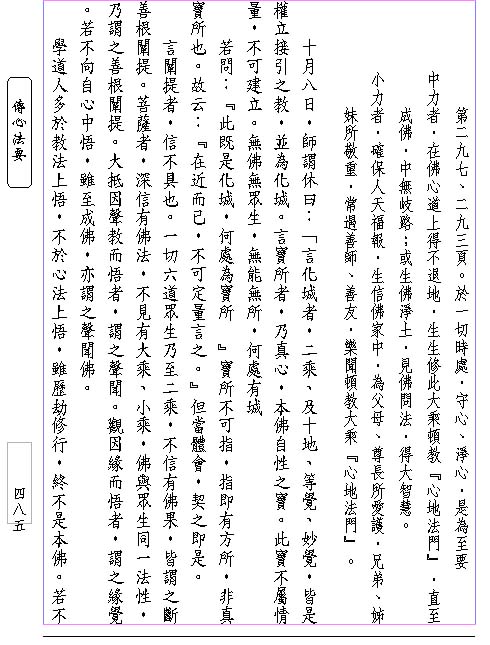 第二九七、二九三頁。於一切時處，守心、淨心，是為至要
中力者，在佛心道上得不退地，生生修此大乘頓教『心地法門』，直至
成佛，中無岐路；或生佛淨土，見佛問法，得大智慧。
小力者，確保人天福報，生信佛家中，為父母、尊長所愛護，兄弟、姊
妹所敬重，常遇善師、善友，樂聞頓教大乘『心地法門』。
十月八日，師謂休曰：「言化城者，二乘、及十地、等覺、妙覺，皆是
權立接引之教，並為化城。言寶所者，乃真心，本佛自性之寶。此寶不屬情
量，不可建立。無佛無眾生，無能無所，何處有城
若問：『此既是化城，何處為寶所　』寶所不可指，指即有方所，非真
寶所也。故云：『在近而已，不可定量言之。』但當體會，契之即是。
言闡提者，信不具也。一切六道眾生乃至二乘，不信有佛果，皆謂之斷
善根闡提。菩薩者，深信有佛法，不見有大乘、小乘，佛與眾生同一法性，
乃謂之善根闡提。大抵因聲教而悟者，謂之聲聞。觀因緣而悟者，謂之緣覺
。若不向自心中悟，雖至成佛，亦謂之聲聞佛。
學道人多於教法上悟，不於心法上悟，雖歷劫修行，終不是本佛。若不
傳心法要
四八五